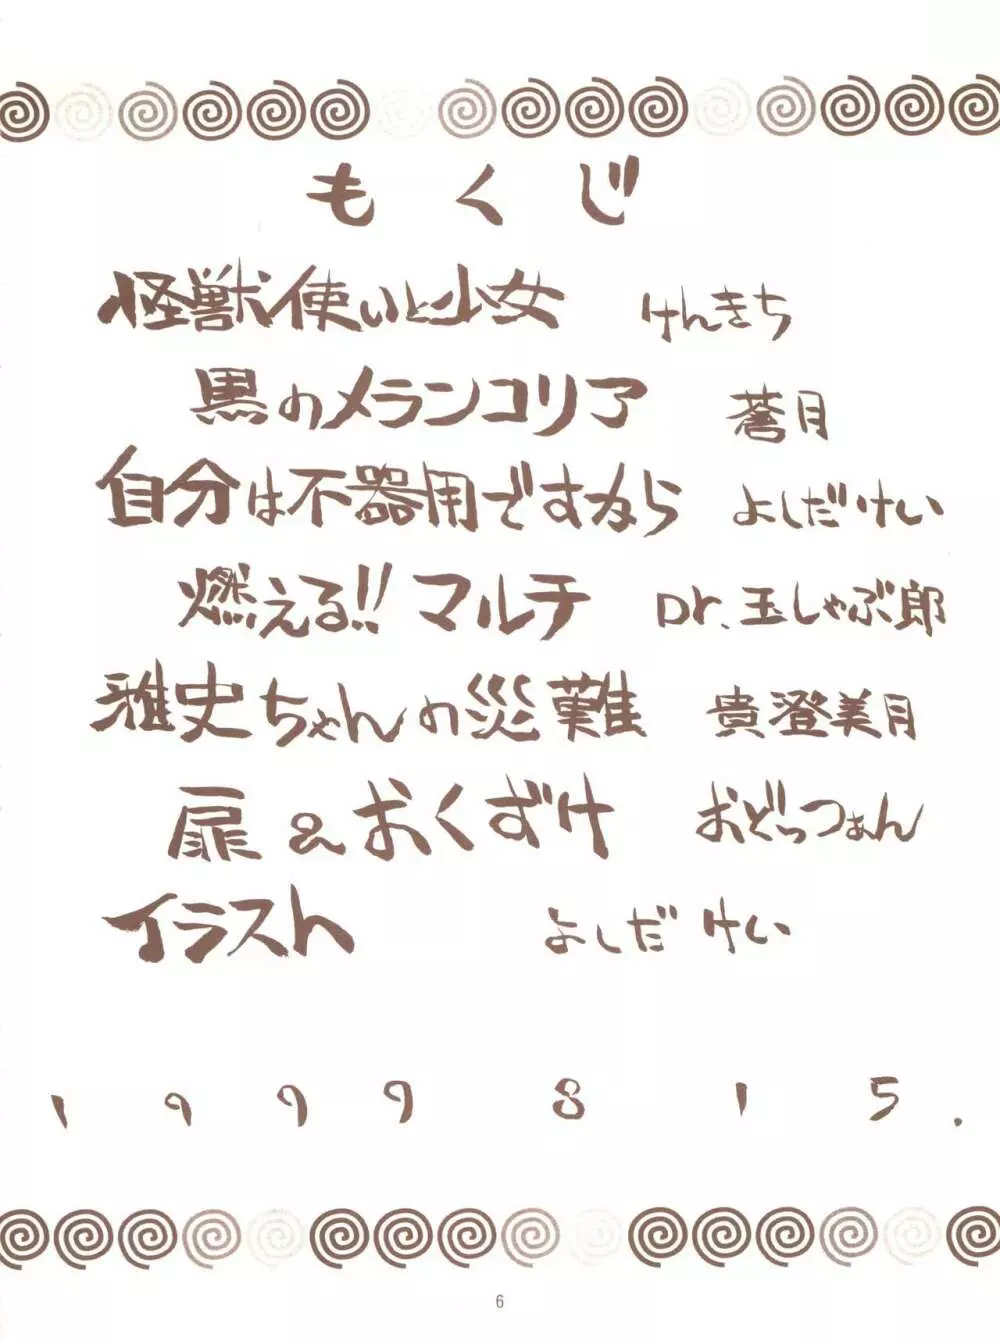 もくじ
怪獣使いと少女 けんきち
黒のメランコリア 蒼月
自分は不器用ですから よしだけい
燃える!! マルチ Dr.玉しゃぶ郎
雅史ちゃんの災難 貴澄美月
扉&おくずけ おどっつぁん
イラスト よしだけい
1999 8 15.
6